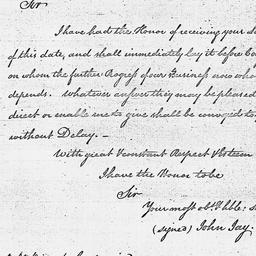 Sir
I have had the Honor of receiving your
of this date, and shall immediately lay it before
on whom the further Progress of our Business now
depends. Whatever answer they may be pleased
direct or enable me to give shall be conveyed to
without Delay. —
With great & constant Respect & Esteem
I have the Honor to be
Sir
Your most obt. & hble.
(signed) John Jay.